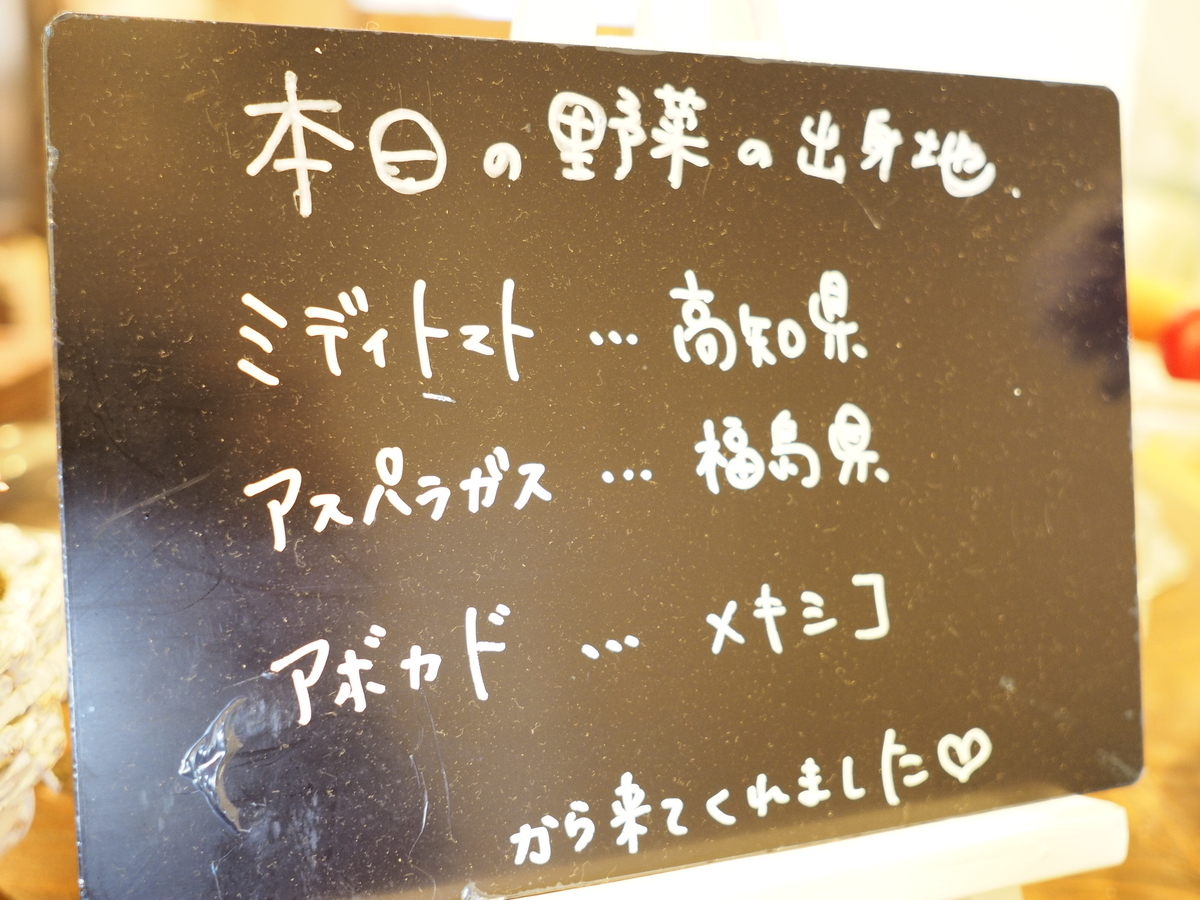 本日の野菜の出身地.
ミディトマト … 高知県
アスパラガス … 福島県
アボカド … メキシコ
から来てくれました♡